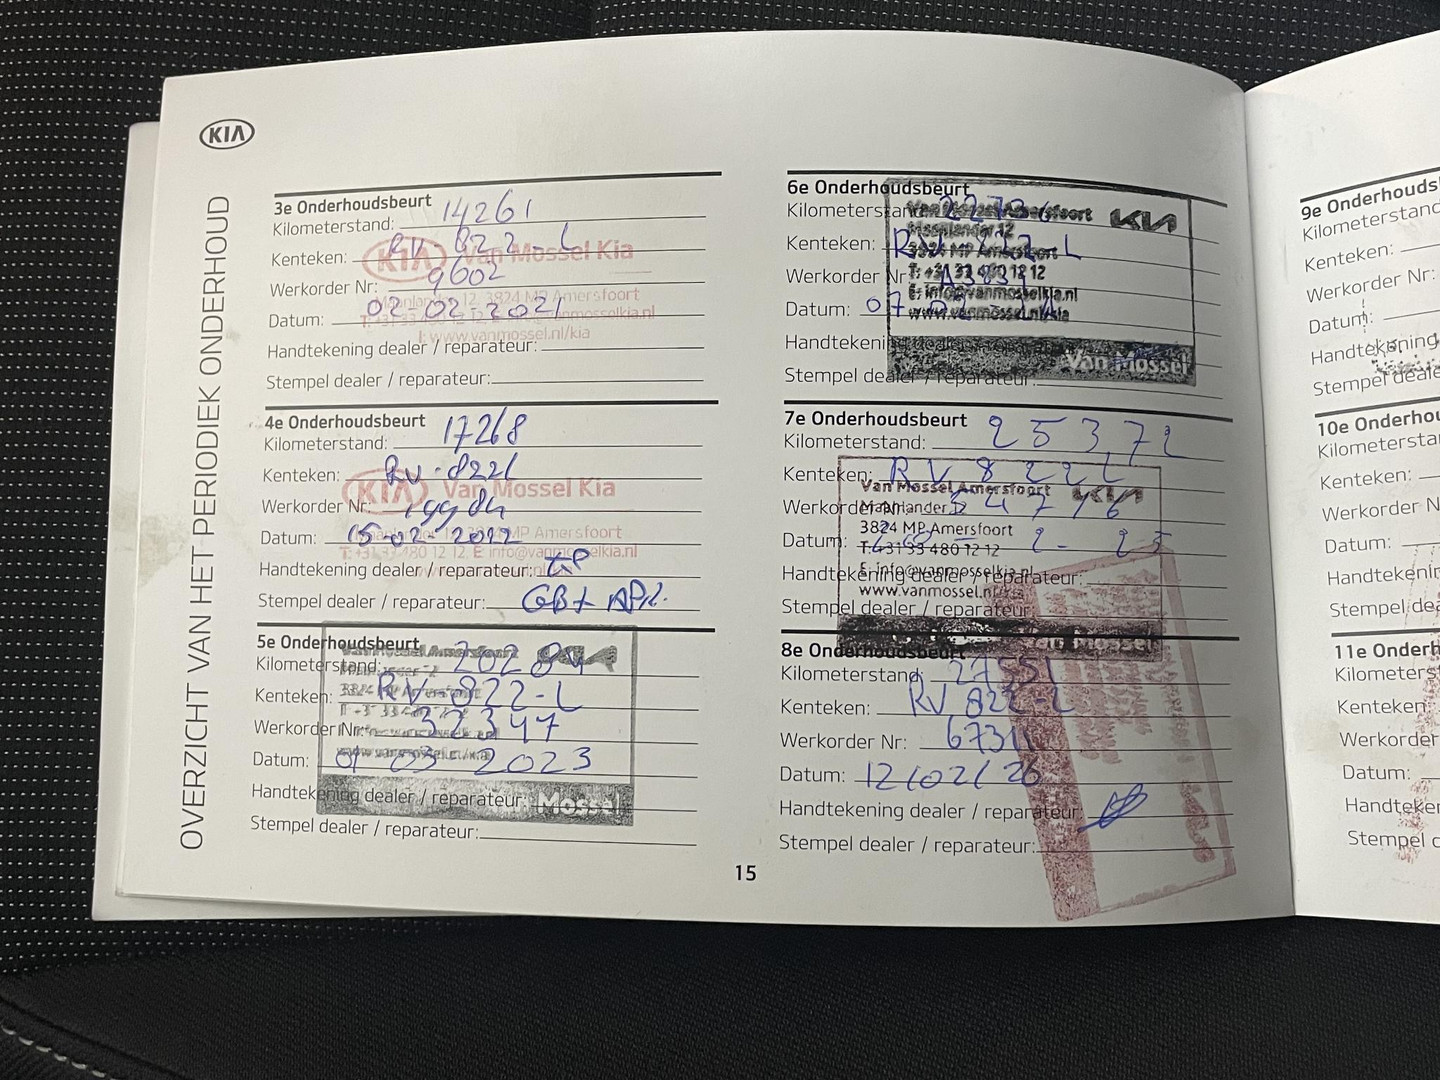 KIA
OVERZICHT VAN HET PERIODIEK ONDERHOUD
3e Onderhoudsbeurt
Kilometerstand: 14261
Kenteken: RV-822-L
Werkorder Nr: 9602
Datum: 02 02 2021
Handtekening dealer / reparateur:
Stempel dealer / reparateur:
KIA Van Mossel Kia
Maanlander 12, 3824 MP Amersfoort
www.vanmossel.nl/kia
4e Onderhoudsbeurt
Kilometerstand: 17268
Kenteken: RV-822L
Werkorder Nr:
Datum: 15-02-2022
Handtekening dealer / reparateur:
Stempel dealer / reparateur:
KIA Van Mossel Kia
MP Amersfoort
T: +31 33 480 12 12 E: info@vanmosselkia.nl
5e Onderhoudsbeurt
Kilometerstand: 20284
Kenteken: RV-822-L
Werkorder Nr: 32347
Datum: 01 03 2023
Handtekening dealer / reparateur:
Stempel dealer / reparateur:
KIA
Mossel
6e Onderhoudsbeurt
Kilometerstand:
Kenteken: RV 822-L
Werkorder Nr:
Datum: 07
Handtekening dealer / reparateur:
Stempel dealer / reparateur:
Van Mossel Amersfoort KIA
Maanlander 12
3824 MP Amersfoort
T: +31 33 480 12 12
E: info@vanmosselkia.nl
www.vanmossel.nl/kia
Van Mossel
7e Onderhoudsbeurt
Kilometerstand: 25372
Kenteken: RV 822L
Werkorder Nr: 54716
Datum: 2- 25
Handtekening dealer / reparateur:
Stempel dealer / reparateur:
Van Mossel Amersfoort KIA
Maanlander 12
3824 MP Amersfoort
T: +31 33 480 12 12
E: info@vanmosselkia.nl
www.vanmossel.nl/kia
Van Mossel
8e Onderhoudsbeurt
Kilometerstand: 27551
Kenteken: RV 822-L
Werkorder Nr: 67311
Datum: 12/02/26
Handtekening dealer / reparateur:
Stempel dealer / reparateur:
15
9e Onderhouds
Kilometerstand
Kenteken:
Werkorder Nr:
Datum:
Handtekening
Stempel deale
10e Onderhou
Kilometersta
Kenteken:
Werkorder N
Datum:
Handtekenin
Stempel dea
11e Onderh
Kilometers
Kenteken:
Werkorder
Datum:
Handteke
Stempel d